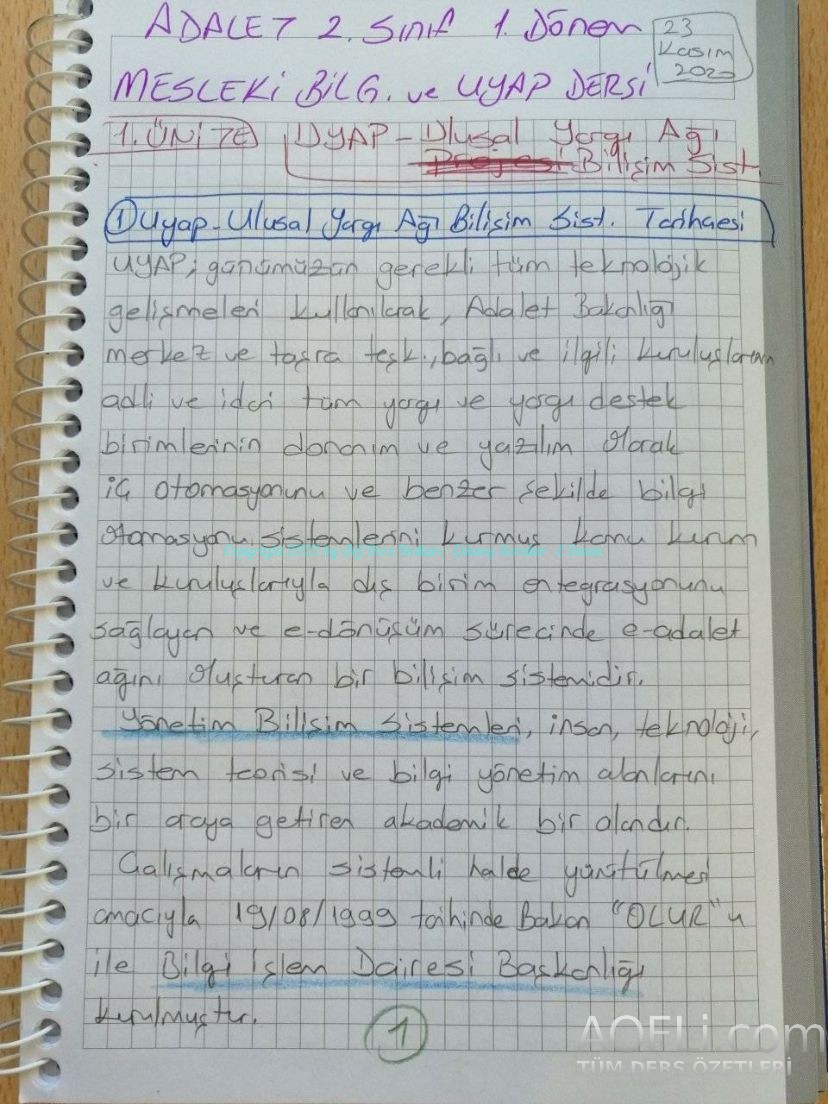 ADALET 2. Sınıf 1. Dönem
23 Kasım 2020
MESLEKİ BİLG. ve UYAP DERSİ
1. ÜNİTE UYAP - Ulusal Yargı Ağı
Projesi Bilişim Sist.
① Uyap - Ulusal Yargı Ağı Bilişim Sist. Tarihçesi
UYAP; günümüzün gerekli tüm teknolojik
gelişmeleri kullanılarak, Adalet Bakanlığı
merkez ve taşra teşk., bağlı ve ilgili kuruluşlarının
adli ve idari tüm yargı ve yargı destek
birimlerinin donanım ve yazılım olarak
iç otomasyonunu ve benzer şekilde bilgi
otomasyonu sistemlerini kurmuş kamu kurum
ve kuruluşlarıyla dış birim entegrasyonunu
sağlayan ve e-dönüşüm sürecinde e-adalet
ağını oluşturan bir bilişim sistemidir.
Yönetim Bilişim Sistemleri, insan, teknoloji,
sistem teorisi ve bilgi yönetim alanlarını
bir araya getiren akademik bir alandır.
Çalışmaların sistemli halde yürütülmesi
amacıyla 19/08/1999 tarihinde Bakan "OLUR"u
ile Bilgi İşlem Dairesi Başkanlığı
kurulmuştur.
1
AOFLi.com
TÜM DERS ÖZETLERİ